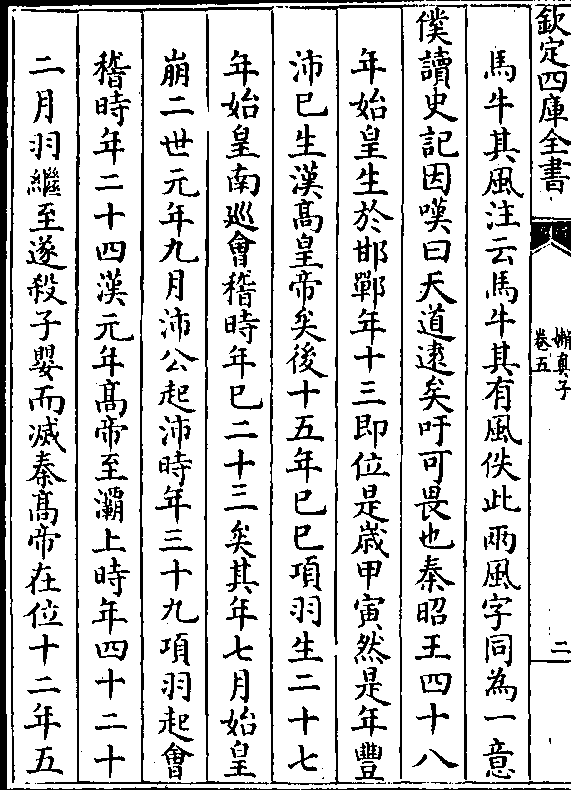 欽定四庫全書
嬾真子
卷五
二
馬牛其風注云馬牛其有風佚此兩風字同為一意
僕讀史記因嘆曰天道逺矣吁可畏也秦昭王四十八
年始皇生於邯鄲年十三即位是歳甲寅然是年豐
沛已生漢髙皇帝矣後十五年己巳項羽生二十七
年始皇南廵會稽時年已二十三矣其年七月始皇
崩二世元年九月沛公起沛時年三十九項羽起會
稽時年二十四漢元年髙帝至灞上時年四十二十
二月羽繼至遂殺子嬰而滅秦髙帝在位十二年五